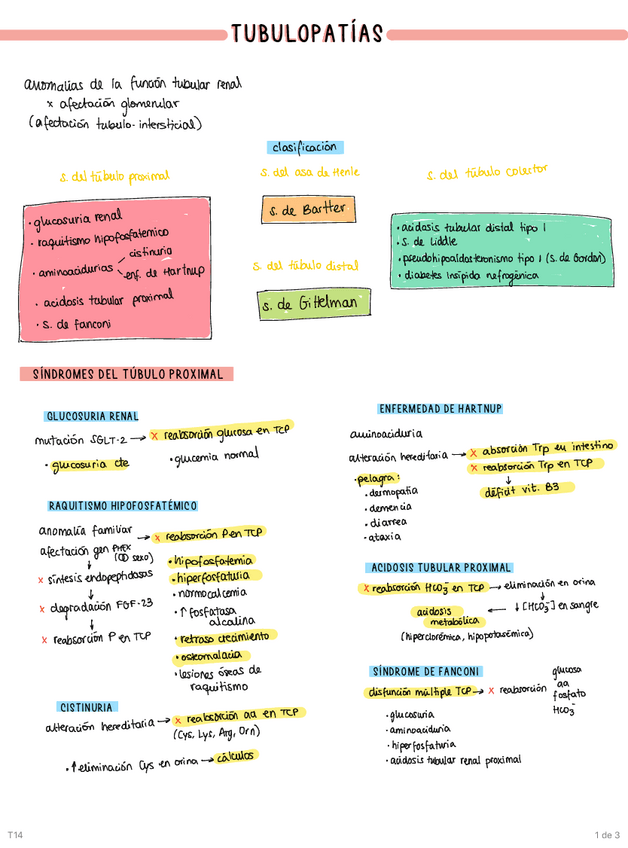 TUBULOPATÍAS
anomalías de la función tubular renal
x afectación glomerular
(afectación tubulo-intersticial)
clasificación
s. del túbulo proximal
s. del asa de Henle
s. del túbulo colector
· glucosuria renal
· raquitismo hipofosfatémico
· aminoacidurias
cistinuria
enf. de Hartnup
· acidosis tubular proximal
· s. de fanconi
s. de Bartter
s. del túbulo distal
s. de Gittelman
· acidosis tubular distal tipo 1
· s. de Liddle
· pseudohipoaldosteronismo tipo 1 (s. de Gordon)
· diabetes insípida nefrogénica
SÍNDROMES DEL TÚBULO PROXIMAL
GLUCOSURIA RENAL
mutación SGLT-2 → x reabsorción glucosa en TCP
· glucosuria cte
· glucemia normal
RAQUITISMO HIPOFOSFATÉMICO
anomalía familiar → x reabsorción P en TCP
afectación gen PHEX
(D sexo)
↓
x síntesis endopeptidasas
↓
x degradación FGF-23
↓
x reabsorción P en TCP
· hipofosfatemia
· hiperfosfaturia
· normocalcemia
· ↑ fosfatasa
alcalina
· retraso crecimiento
· osteomalacia
· lesiones óseas de
raquitismo
CISTINURIA
alteración hereditaria → x reabsorción aa en TCP
(Cys, Lys, Arg, Orn)
· ↑ eliminación Cys en orina → cálculos
ENFERMEDAD DE HARTNUP
aminoaciduria
alteración hereditaria → x absorción Trp en intestino
x reabsorción Trp en TCP
↓
déficit vit. B3
· pelagra:
· dermopatía
· demencia
· diarrea
· ataxia
ACIDOSIS TUBULAR PROXIMAL
x reabsorción HCO3⁻ en TCP → eliminación en orina
acidosis metabólica ← ↓ [HCO3⁻] en sangre
(hiperclorémica, hipopotasémica)
SÍNDROME DE FANCONI
disfunción múltiple TCP → x reabsorción
glucosa
aa
fosfato
HCO3⁻
· glucosuria
· aminoaciduria
· hiperfosfaturia
· acidosis tubular renal proximal
T14
1 de 3